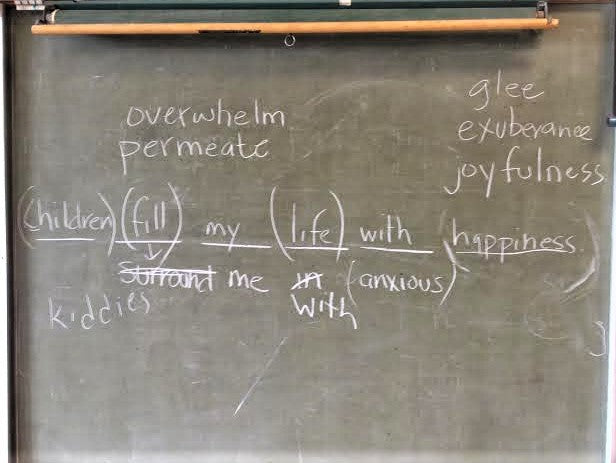 glee
overwhelm exuberance
permeate joyfulness
(Children) (fill) my (life) with (happiness.)
surround me in (anxious)
kiddies with